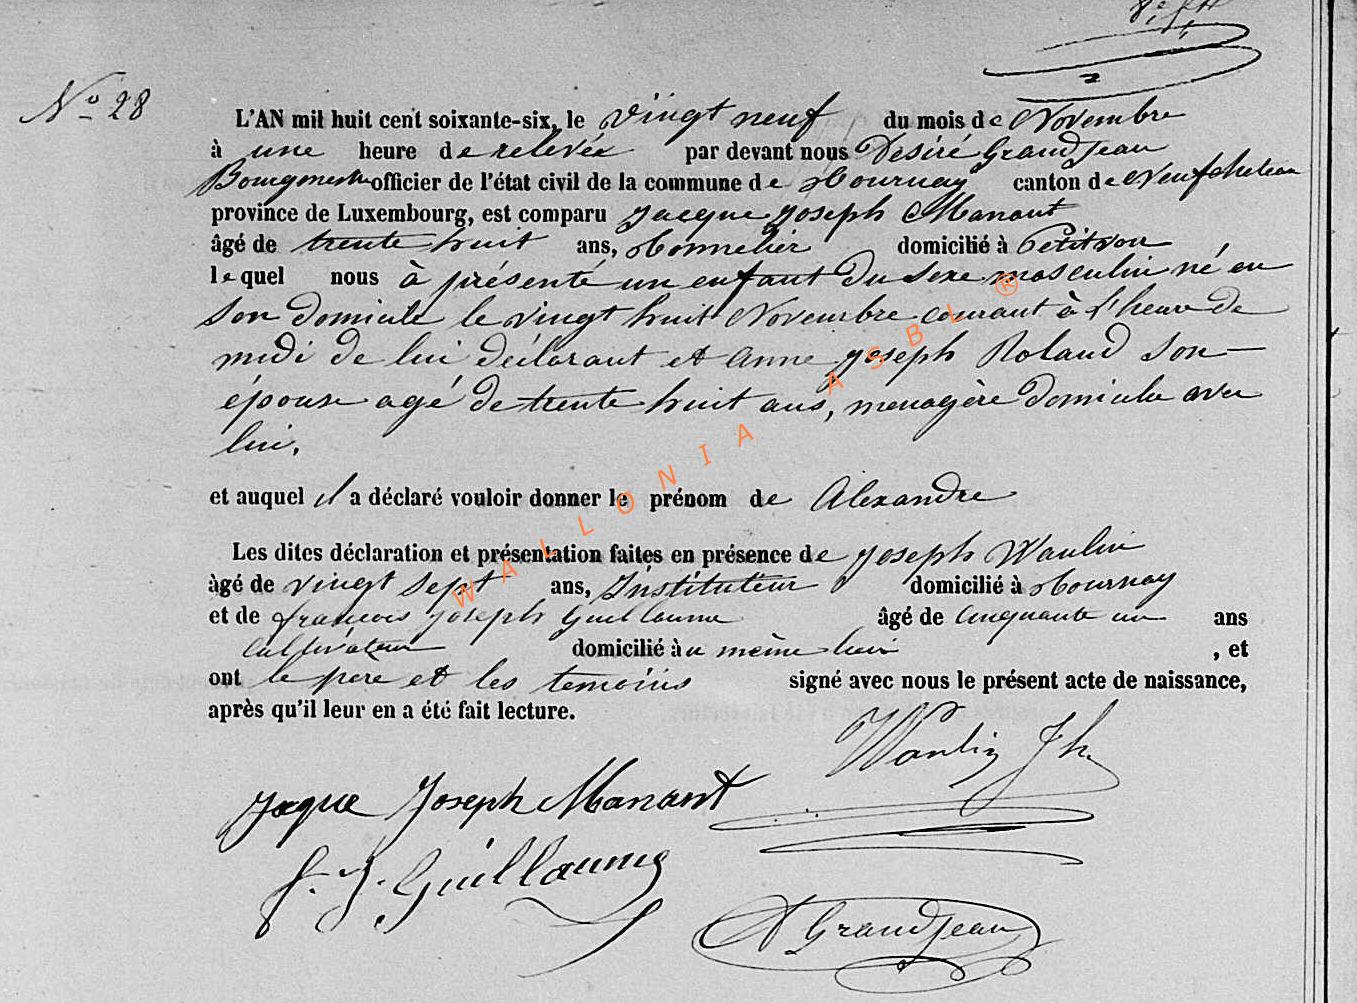 No 28
L'AN mil huit cent soixante-six, le vingt neuf du mois de Novembre
à une heure de relevée par devant nous Désiré GrandJean
Bourgmestre officier de l'état civil de la commune de Tournay canton de Neufchateau
province de Luxembourg, est comparu Jacque Joseph Manant
âgé de trente huit ans, domicilié à Petitvoir
lequel nous à présenté un enfant du sexe masculin né en
son domicile le vingt huit Novembre courant à l'heure de
midi de lui déclarant et Anne Joseph Roland son
épouse agé de trente huit ans, menagère domicilée avec
lui.
et auquel il a déclaré vouloir donner le prénom de Alexandre
Les dites déclaration et présentation faites en présence de Joseph Waulin
âgé de vingt sept ans, Instituteur domicilié à Tournay
et de françois Joseph Guillaume âgé de cinquante un ans
Cultivateur domicilié àu même lieu , et
ont le père et les témoins signé avec nous le présent acte de naissance,
après qu'il leur en a été fait lecture.
Waulin Jh.
Jaque Joseph Manant
f. J. Guillaume
D GrandJean
WALLONIA ASBL ®